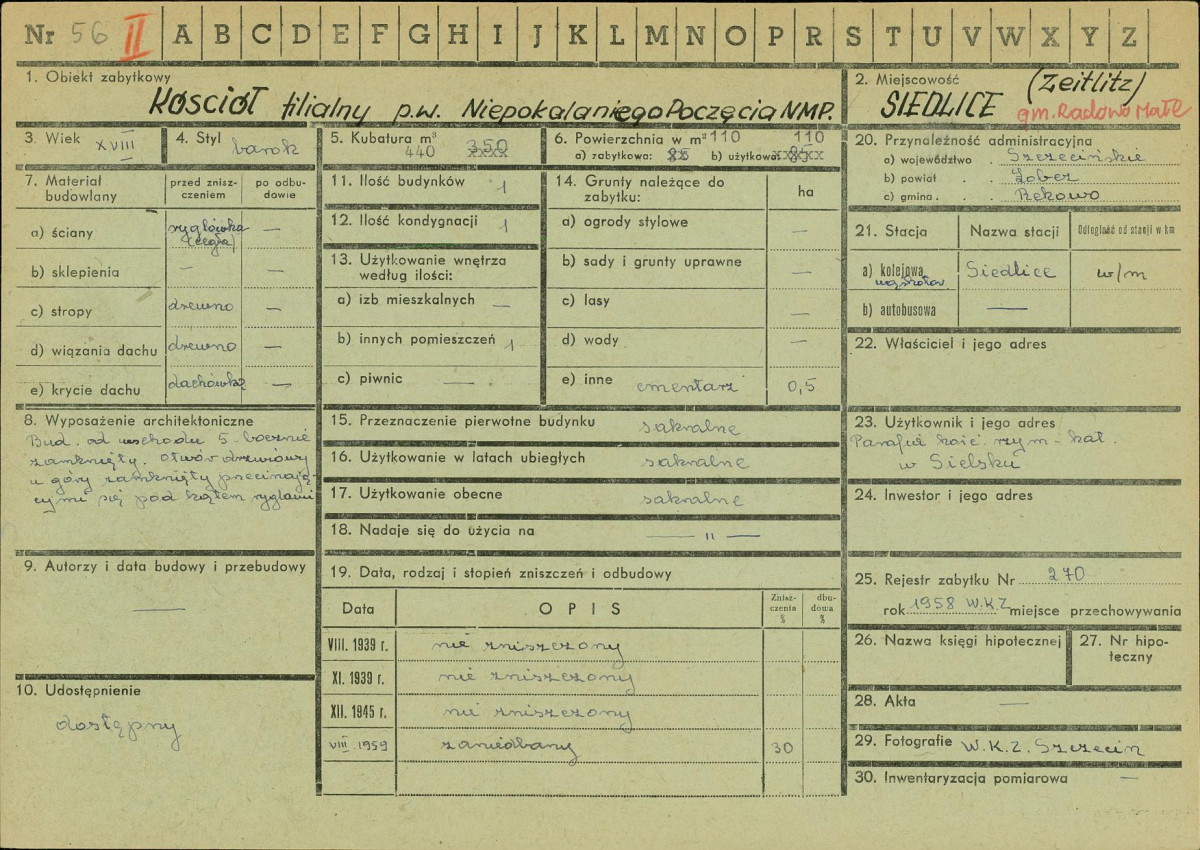 Nr 56 II A B C D E F G H I J K L M N O P R S T U V W X Y Z
1. Obiekt zabytkowy
KOŚCIÓŁ filialny p.w. Niepokalaniego Poczęcia NMP.
2. Miejscowość (Zeitlitz)
SIEDLICE gm. Radowo Małe
3. Wiek XVIII
4. Styl barok
5. Kubatura m³
440 350
6. Powierzchnia w m² 110 110
a) zabytkowa: 85 b) użytkowa: 85
7. Materiał budowlany
przed zniszczeniem
po odbudowie
a) ściany ryglówka (cegła) —
b) sklepienia – —
c) stropy drewno —
d) wiązania dachu drewno —
e) krycie dachu dachówka —
8. Wyposażenie architektoniczne
Bud. od wschodu 5-bocznie
zamknięty. Otwór drzwiowy
u góry zamknięty przecinają
cymi się pod kątem ryglami
9. Autorzy i data budowy i przebudowy
—
10. Udostępnienie
dostępny
11. Ilość budynków 1
12. Ilość kondygnacji 1
13. Użytkowanie wnętrza
według ilości:
a) izb mieszkalnych —
b) innych pomieszczeń 1
c) piwnic —
14. Grunty należące do
zabytku:
ha
a) ogrody stylowe —
b) sady i grunty uprawne —
c) lasy —
d) wody —
e) inne cmentarz 0,5
15. Przeznaczenie pierwotne budynku sakralne
16. Użytkowanie w latach ubiegłych sakralne
17. Użytkowanie obecne sakralne
18. Nadaje się do użycia na — " —
19. Data, rodzaj i stopień zniszczeń i odbudowy
Data OPIS Zniszczenia % dbudowa %
VIII. 1939 r. nie zniszczony
XI. 1939 r. nie zniszczony
XII. 1945 r. nie zniszczony
VIII. 1959 zaniedbany 30
20. Przynależność administracyjna
a) województwo . Szczecińskie
b) powiat . . Łobez
c) gmina . . . Rekowo
21. Stacja Nazwa stacji Odległość od stacji w km
a) kolejowa wąskotor. Siedlice w/m
b) autobusowa —
22. Właściciel i jego adres
23. Użytkownik i jego adres
Parafia kośc. rzym-kat.
w Sielsku
24. Inwestor i jego adres
25. Rejestr zabytku Nr 270
rok 1958 W.K.Z miejsce przechowywania
26. Nazwa księgi hipotecznej
27. Nr hipoteczny
28. Akta —
29. Fotografie W.K.Z. Szczecin
30. Inwentaryzacja pomiarowa —